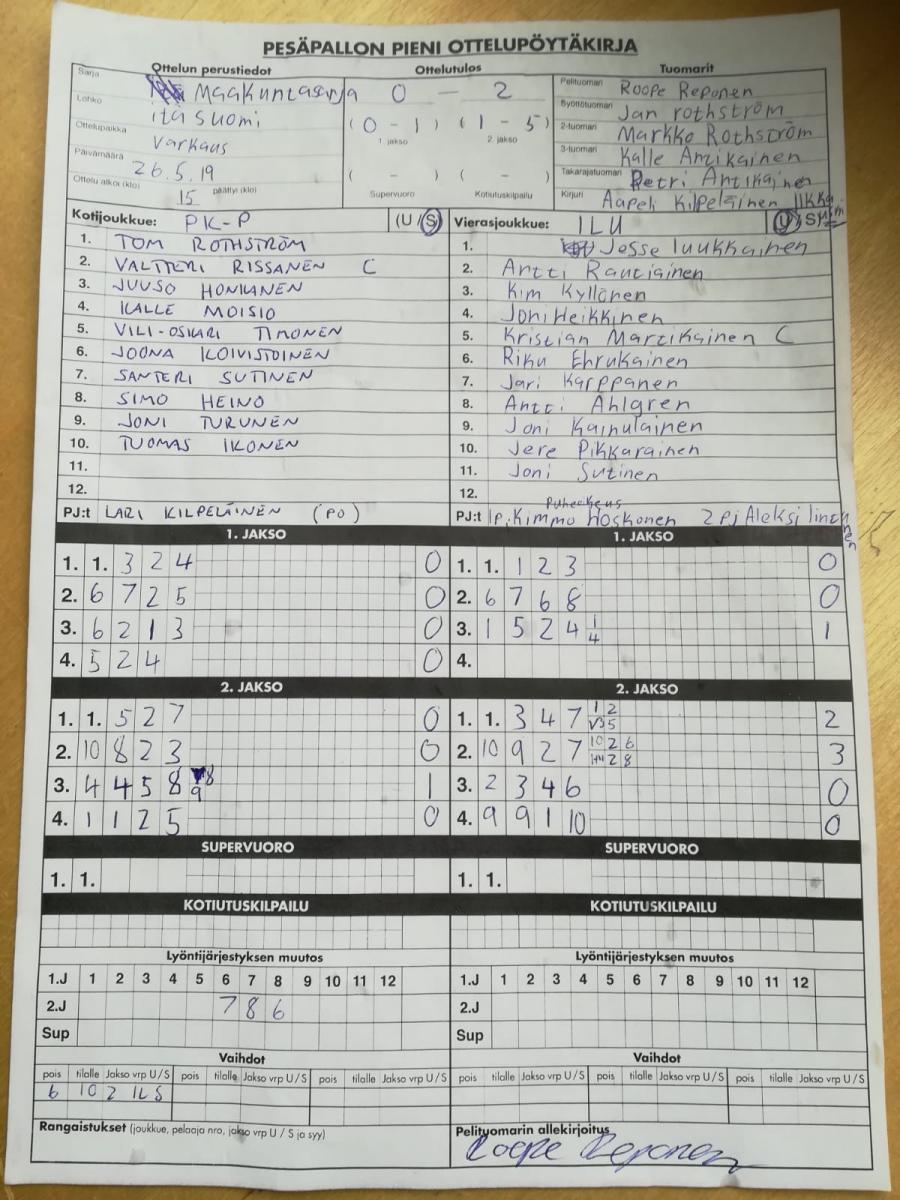 PESÄPALLON PIENI OTTELUPÖYTÄKIRJA
Ottelun perustiedot Ottelutulos Tuomarit
Sarja Maakuntasarja 0 — 2 Pelituomari Roope Reponen
Lohko itä suomi Syöttötuomari Jan rothström
Ottelupaikka Varkaus (0-1) (1-5) 2-tuomari Markko Rothström
1. jakso 2. jakso 3-tuomari Kalle Antikainen
Päivämäärä 26.5.19 ( - ) ( - ) Takarajatuomari Petri Antikainen
Ottelu alkoi (klo) 15 päättyi (klo) Supervuoro Kotiutuskilpailu Kirjuri Aapeli Kilpeläinen
Kotijoukkue: PK-P (U/S) Vierasjoukkue: ILU (U/S)
1. TOM ROTHSTRÖM 1. Jesse luukkainen
2. VALTTERI RISSANEN C 2. Antti Rautiainen
3. JUUSO HONKANEN 3. Kim Kyllönen
4. KALLE MOISIO 4. Joni Heikkinen
5. VILI-OSKARI TIMONEN 5. Kristian Martikainen C
6. JOONA KOIVISTOINEN 6. Riku Ehrukainen
7. SANTERI SUTINEN 7. Jari Karppanen
8. SIMO HEINO 8. Antti Ahlgren
9. JONI TURUNEN 9. Joni Kainulainen
10. TUOMAS IKONEN 10. Jere Pikkarainen
11. 11. Joni Sutinen
12. 12.
PJ:t LARI KILPELÄINEN (PO) PJ:t 1p. Kimmo Hoskonen 2 pj Aleksi
1. JAKSO 1. JAKSO
1. 1. 3 2 4 0 1. 1. 1 2 3 0
2. 6 7 2 5 0 2. 6 7 6 8 0
3. 6 2 1 3 0 3. 1 5 2 4 1 4 1
4. 5 2 4 0 4.
2. JAKSO 2. JAKSO
1. 1. 5 2 7 0 1. 1. 3 4 7 1 2 5 2
2. 10 8 2 3 0 2. 10 9 2 7 10 2 6 2 8 3
3. 4 4 5 8 8 9 1 3. 2 3 4 6 0
4. 1 1 2 5 0 4. 9 9 1 10 0
SUPERVUORO SUPERVUORO
1. 1. 1. 1.
KOTIUTUSKILPAILU KOTIUTUSKILPAILU
Lyöntijärjestyksen muutos Lyöntijärjestyksen muutos
1.J 1 2 3 4 5 6 7 8 9 10 11 12 1.J 1 2 3 4 5 6 7 8 9 10 11 12
2.J 7 8 6 2.J
Sup Sup
Vaihdot Vaihdot
pois tilalle Jakso vrp U/S pois tilalle Jakso vrp U/S pois tilalle Jakso vrp U/S pois tilalle Jakso vrp U/S pois tilalle Jakso vrp U/S pois tilalle Jakso vrp U/S
6 10 2
Rangaistukset (joukkue, pelaaja nro, jakso vrp U / S ja syy) Pelituomarin allekirjoitus
Roope Reponen